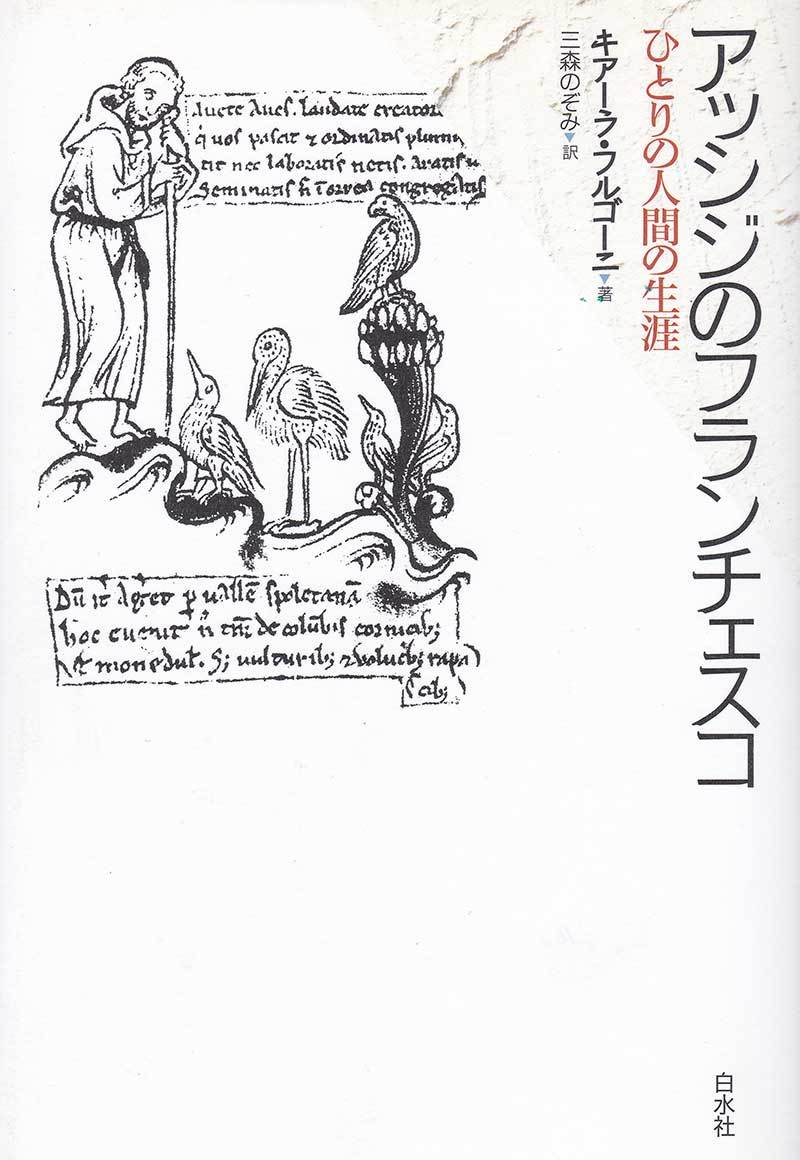 アッシジのフランチェスコ
ひとりの人間の生涯
キアーラ・フルゴーニ▼著
三森のぞみ▼訳
Avete Aves. laudate creator
q̇ vos pascit ⁊ ordinatis plumis
tit nec laboratis netis. Aratis
Seminatis congregatis
Dū it Aq̄et ꝑ vallē spoletanā
hoc evenit ñ tm̄ de colūbis cornicib;
⁊ monedul. S; vulturib; ⁊ volucb; rapa
cib;
白水社